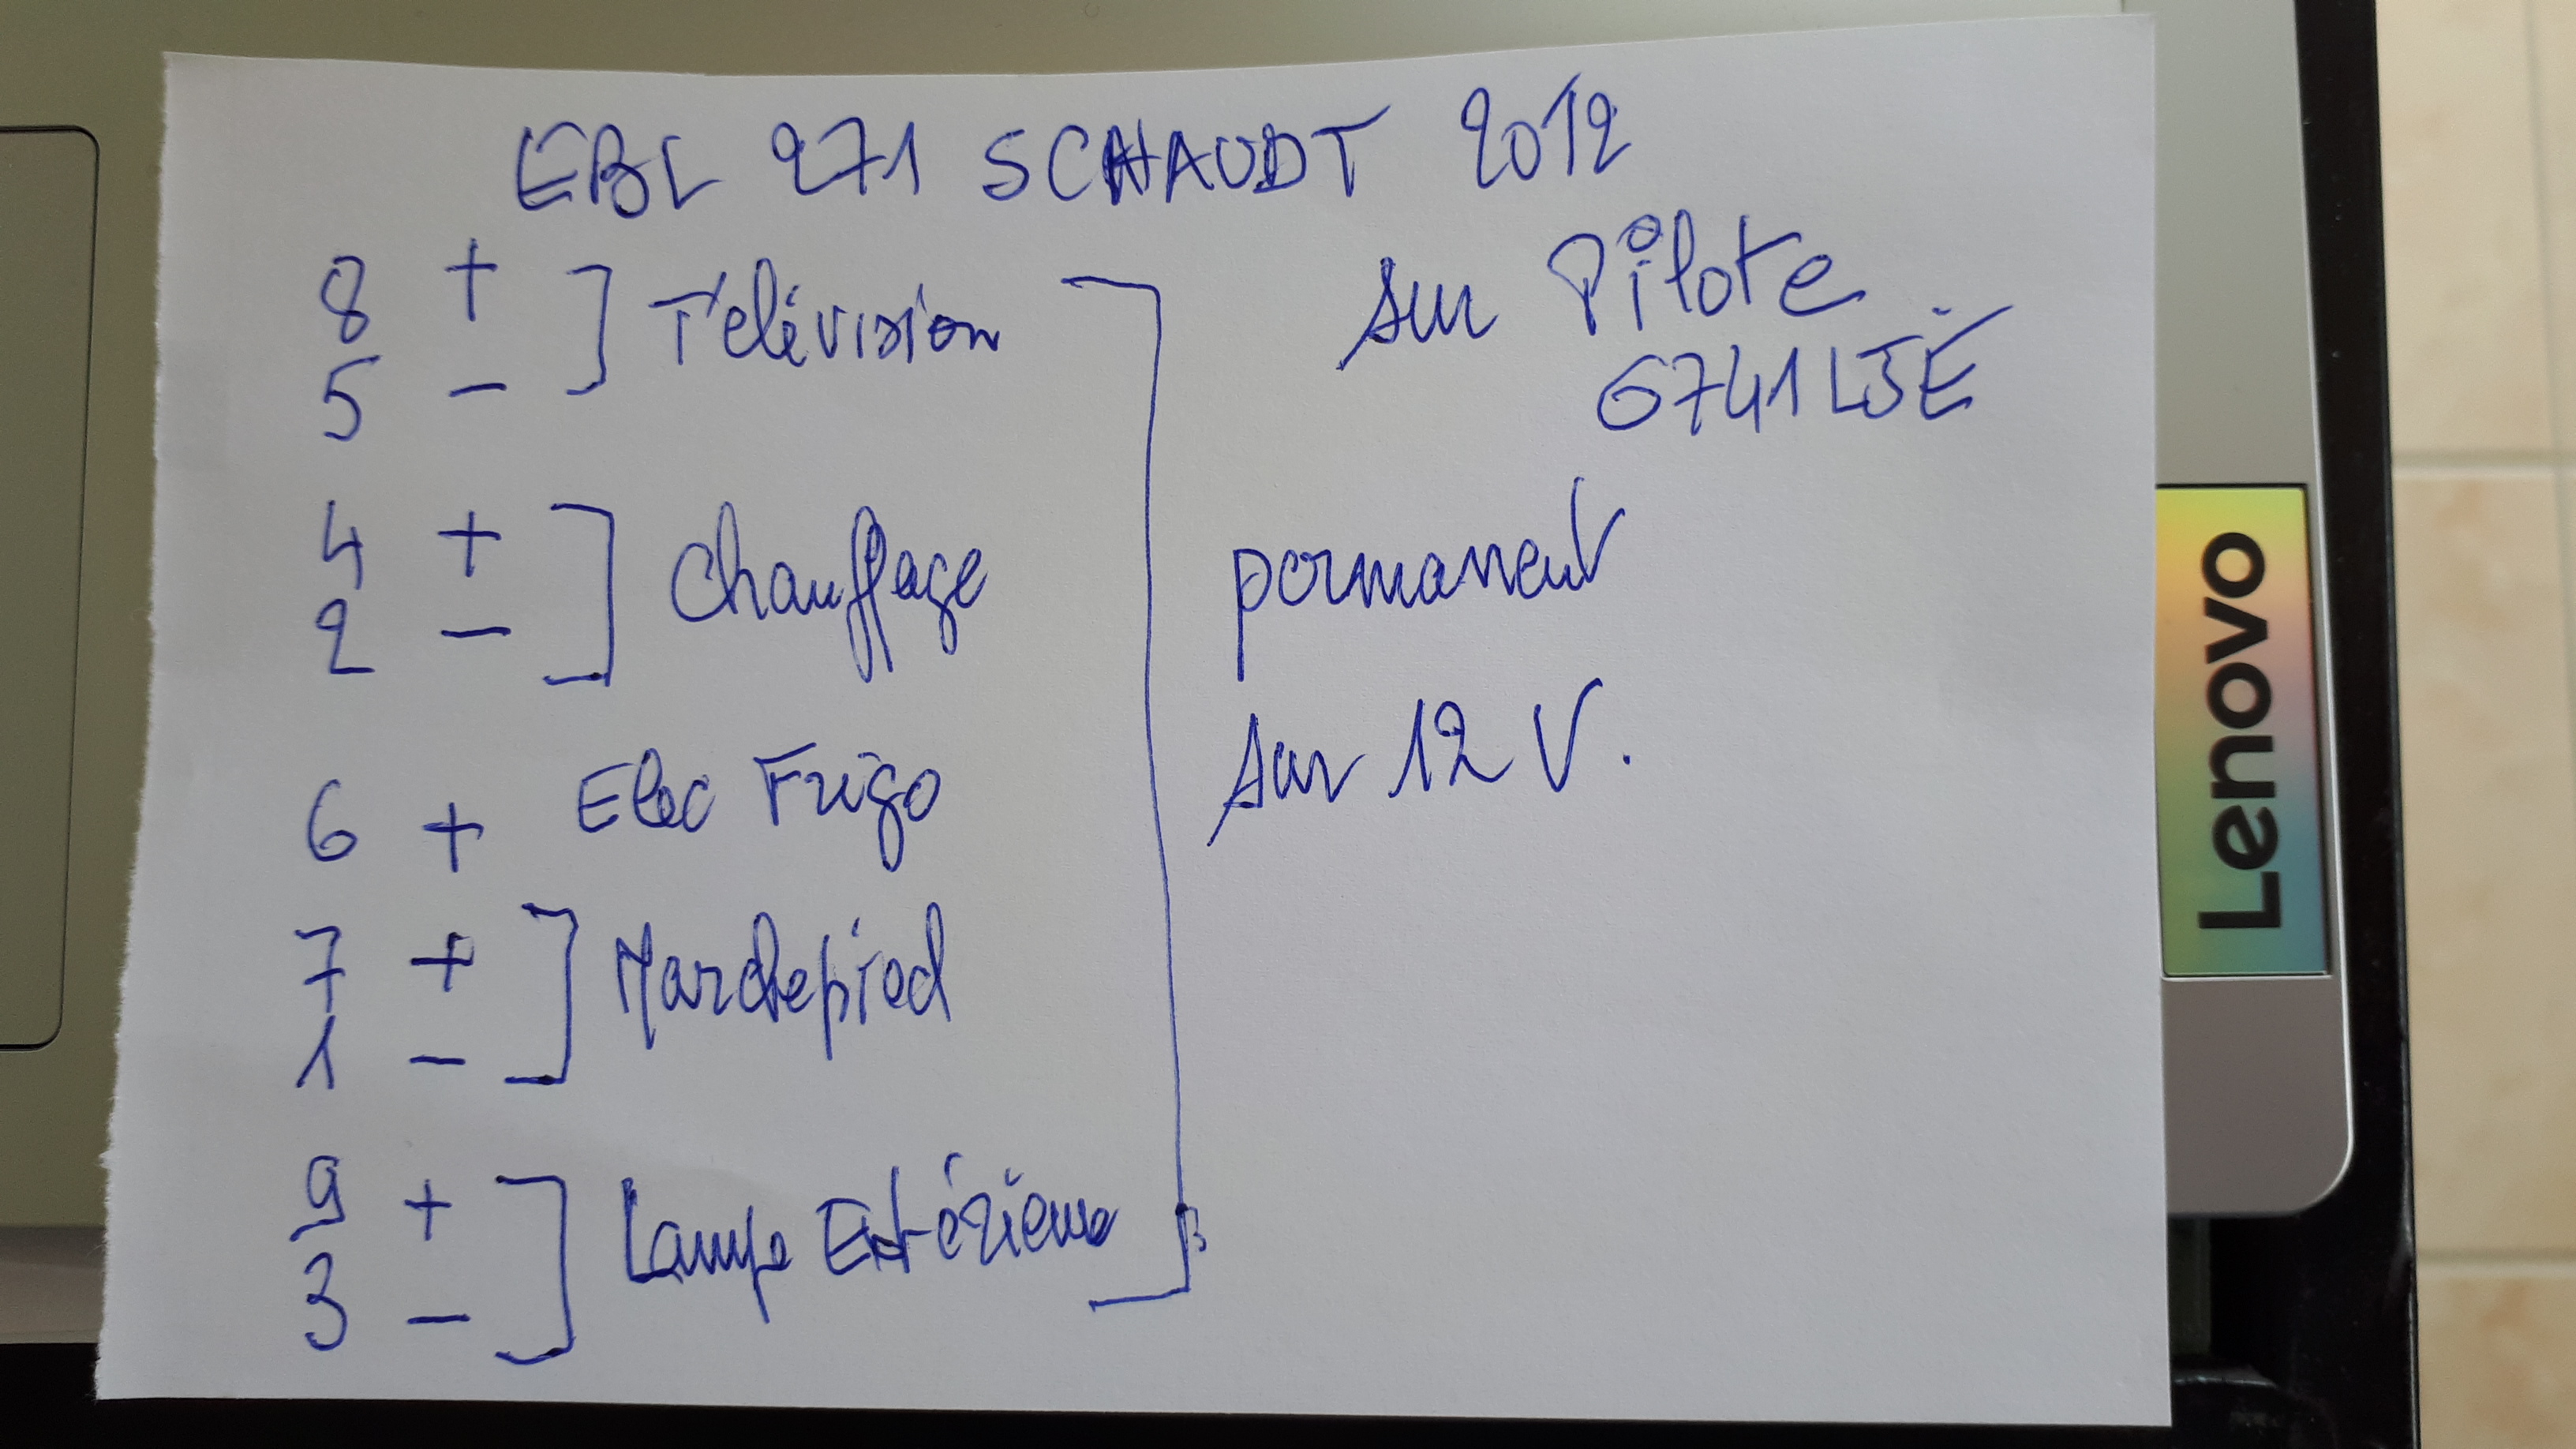 EBL 271 SCHAUDT 2012
sur Pilote
6741 LJE
8 +
5 -
Télévision
4 +
2 -
Chauffage
permanent
sur 12 V.
6 + Elec Frigo
7 +
1 -
Marchepied
9 +
3 -
Lampe Extérieure
Lenovo